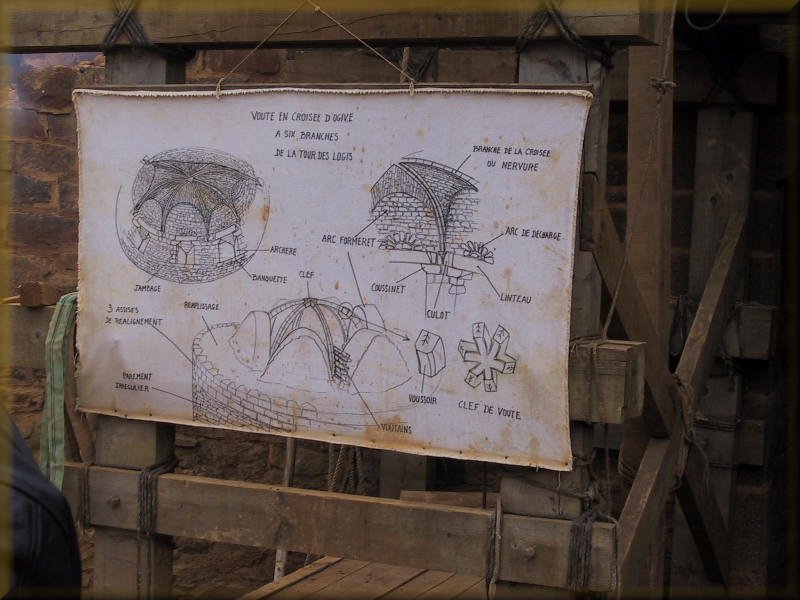 VOUTE EN CROISEE D'OGIVE
A SIX BRANCHES
DE LA TOUR DES LOGIS
BRANCHE DE LA CROISEE
OU NERVURE
ARC FORMERET
ARC DE DECHARGE
ARCHERE
BANQUETTE
JAMBAGE
CLEF
COUSSINET
CULOT
LINTEAU
REMPLISSAGE
3 ASSISES
DE REALIGNEMENT
PAREMENT
IRREGULIER
VOUTAINS
VOUSSOIR
CLEF DE VOUTE